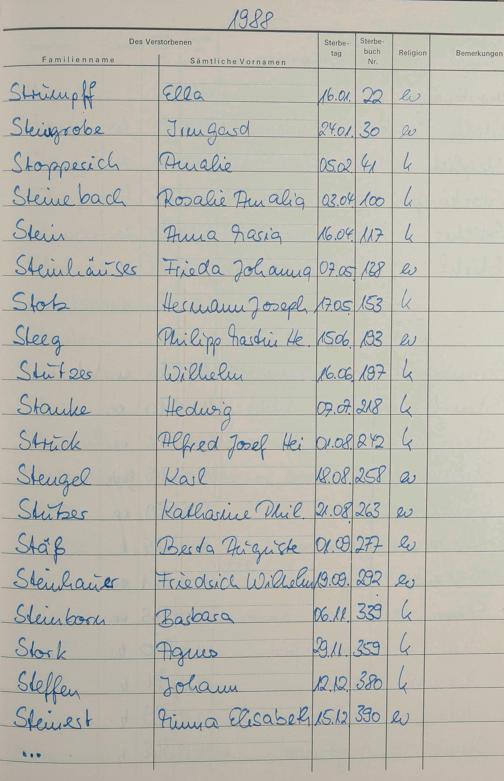 1988
Des Verstorbenen Sterbe- Sterbe-
Familienname Sämtliche Vornamen tag buch Nr. Religion Bemerkungen
Strumpff Ella 16.01. 22 ev
Steingrobe Irmgard 24.01. 30 ev
Stoppesich Amalie 05.02 41 k
Steinebach Rosalie Amalia 03.04 100 k
Stein Anna Maria 16.04. 117 k
Steinhäuser Frieda Johanna 07.05. 128 ev
Stotz Hermann Joseph 17.05. 153 k
Steeg Philipp Martin He. 1506. 193 ev
Stützer Wilhelm 16.06. 197 k
Stanke Hedwig 07.07. 218 k
Strück Alfred Josef Hei 01.08. 242 k
Stengel Karl 18.08. 258 ev
Stützer Katharine Phil. 21.08. 263 ev
Stäß Berta Auguste 01.09. 277 ev
Steinhauer Friedrich Wilhelm 19.09. 292 ev
Steinborn Barbara 06.11. 339 k
Stork Agnes 29.11. 359 k
Steffen Johann 12.12. 380 k
Steinert Minna Elisabeth 15.12 390 ev
...